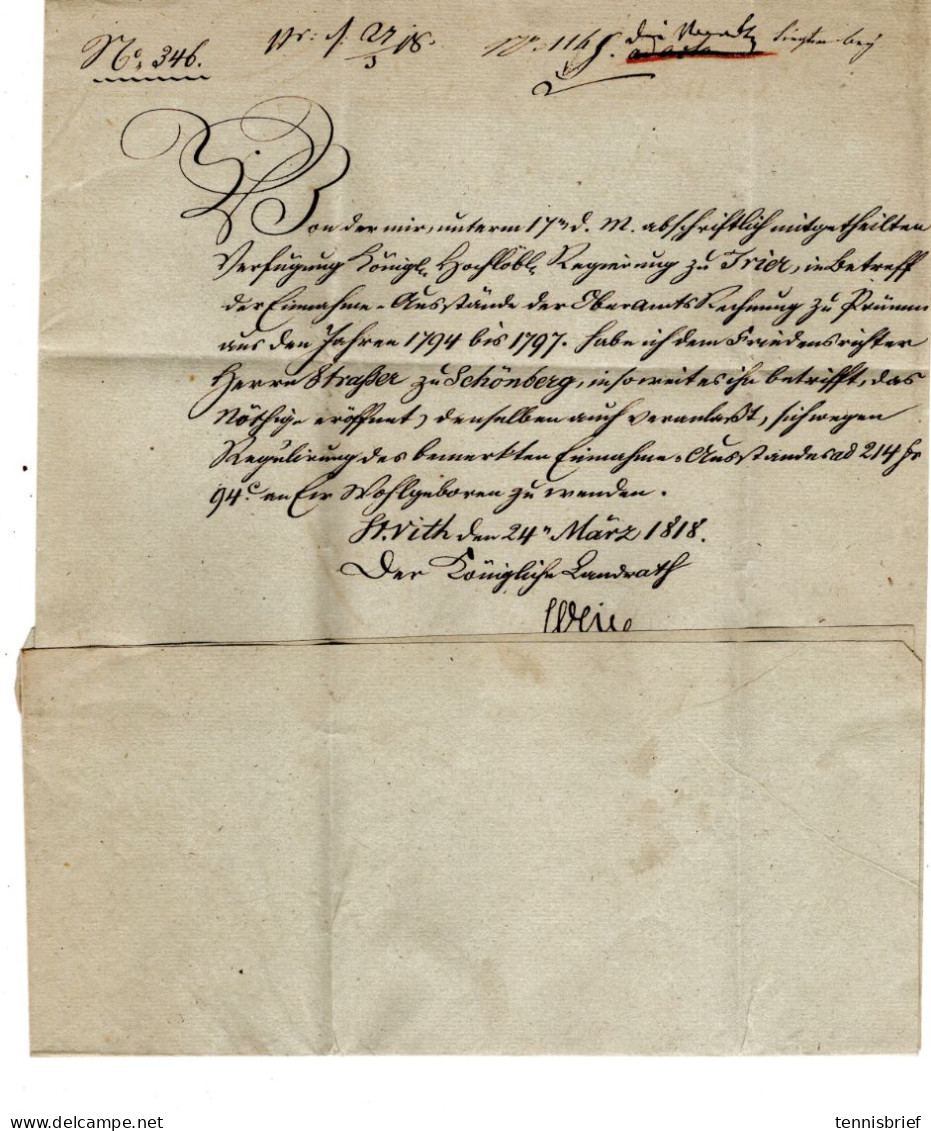 No. 346.
Pr: d. 27/3 18.
No. 1148. liegen bey
Von der mir unterm 17n d. M. abschriftlich mitgetheilten
Verfügung Königl. Hochlöbl. Regierung zu Trier, in Betreff
der Einnahme-Ausstände der OberamtsRechnung zu Prümm
aus den Jahren 1794 bis 1797. habe ich dem Friedensrichter
Herrn Straßer zu Schönberg, in soweit es ihn betrifft, das
Nöthige eröffnet, denselben auch veranlaßt, sich wegen
Regulirung des bemerkten Einnahme-Ausstandes ad 214 fr
94 c. an Ew Wohlgeboren zu wenden.
St. Vith den 24n März 1818.
Der Königliche Landrath
tennisbrief